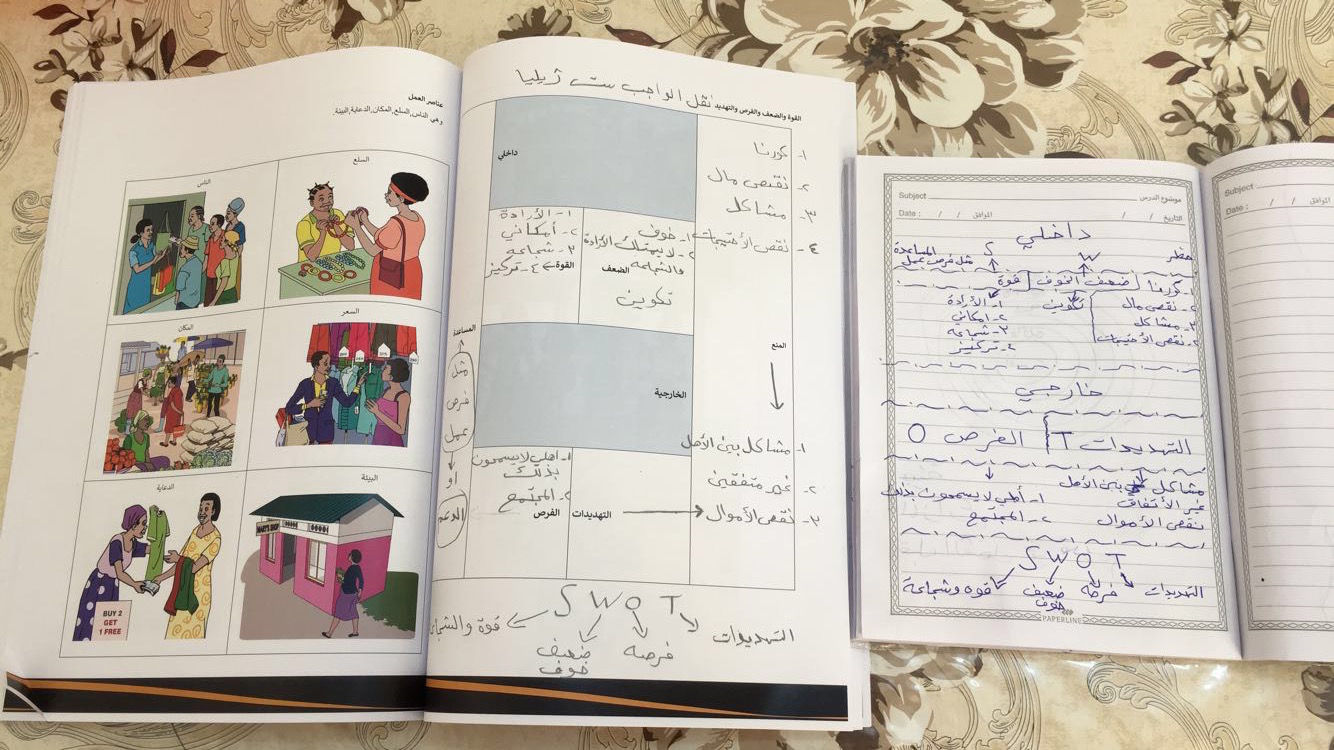 عناصر العمل
وهي: الناس, السلع, المكان, الدعاية, البيئة.
السلع
الناس
السعر
المكان
البيئة
MARY'S SHOP
الدعاية
BUY 2
GET
1 FREE
القوة والضعف والفرص والتهديد نقل الواجب ست ژيليا
داخلي
١- كورنا
٢- نقص مال
٣- مشاكل
٤- نقص الأحتيجات
١- خوف
٢- لا يمتلك الأرادة
والشجاعه
الضعف
تكوين
١- الأرادة
٢- أمكاني
٣- شجاعه
القوة ٤- تركيز
المساعدة
مثل
فرص
عمل
او
الدعم
المنع
الخارجية
١- مشاكل بين الأهل
٢- غير متفقين
٣- نقص الأموال
التهديدات
١- اهلي لا يسمحون
بذلك
٢- المجتمع
الفرص
S W O T
التهديوات
فرصه
ضعيف
خوف
قوة والشجا
Subject
موضوع الدرس
Date : / /
الموافق / /
التاريخ
داخلي
خطر
W
S
المساعدة
مثل فرص عمل
١- كورنا
ضعيف الخوف
قوة
٢- نقص مال
٣- مشاكل
٢- نقص الأحتيجات
تكوين
١- الأرادة
٢- امكاني
٣- شجاعه
٤- تركيز
خارجي
التهديدات T
الفرص O
مشاكل بين الأهل
غير الأتفاق
نقص الأموال
١- أهلي لا يسمحون بذلك
٢- المجتمع
S W O T
التهديدات
فرصه
ضعيف
خوف
قوه وشجاعة
PAPERLINE
Subject
Date : / /
الموافق